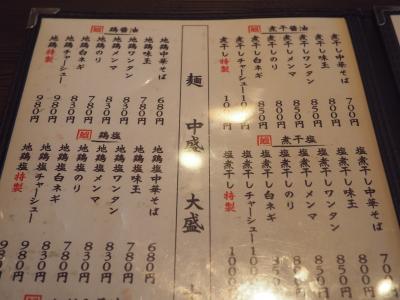 煮干醤油
煮干し中華そば 700円
煮干し味玉 800円
煮干しワンタン 850円
煮干しメンマ 850円
煮干しのり 800円
煮干し白ネギ 850円
煮干しチャーシュー
煮干し特製
煮干塩
塩煮干し中華そば 700円
塩煮干し味玉 800円
塩煮干しワンタン 850円
塩煮干しメンマ 850円
塩煮干しのり 800円
塩煮干し白ネギ 850円
塩煮干しチャーシュー 1000円
塩煮干し特製 1000円
麺 中盛 大盛
鶏醤油
地鶏中華そば 680円
地鶏味玉 780円
地鶏ワンタン 830円
地鶏メンマ 830円
地鶏のり 780円
地鶏白ネギ 830円
地鶏チャーシュー 980円
地鶏特製 980円
鶏塩
地鶏塩中華そば 680円
地鶏塩味玉 780円
地鶏塩ワンタン 830円
地鶏塩メンマ 830円
地鶏塩のり 780円
地鶏塩白ネギ 830円
地鶏塩チャーシュー 980円
地鶏塩特製 980円